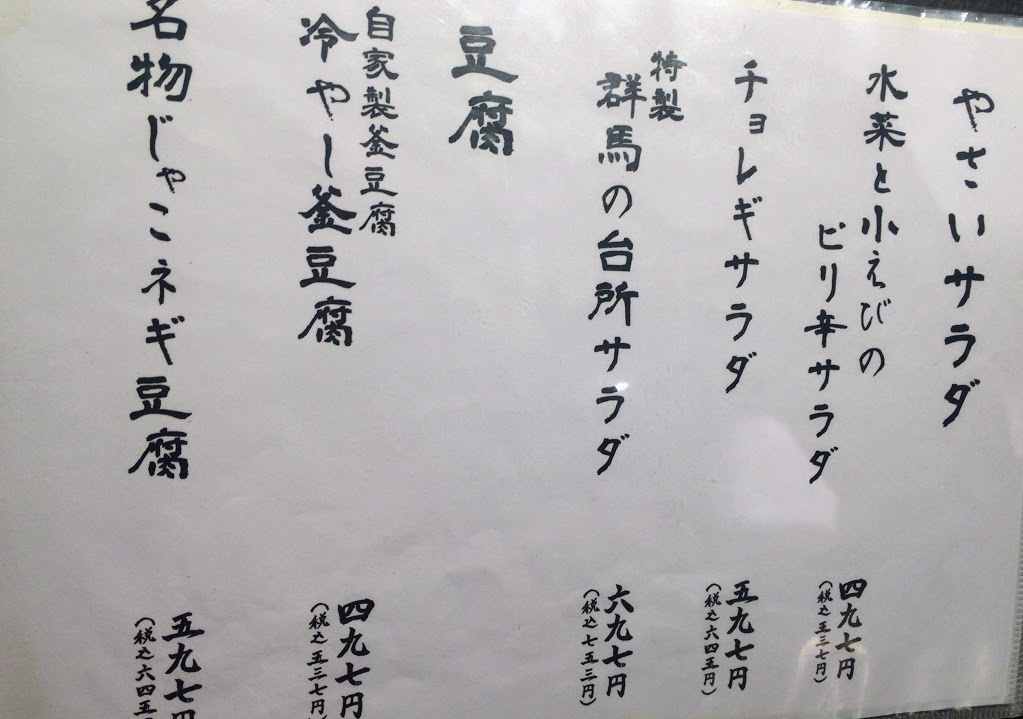 やさいサラダ
水菜と小えびの
ピリ辛サラダ
四九七円
(税込五三七円)
チョレギサラダ
五九七円
(税込六四五円)
特製
群馬の台所サラダ
六九七円
(税込七五三円)
豆腐
自家製釜豆腐
冷やし釜豆腐
四九七円
(税込五三七円)
名物じゃこネギ豆腐
五九七円
(税込六四五